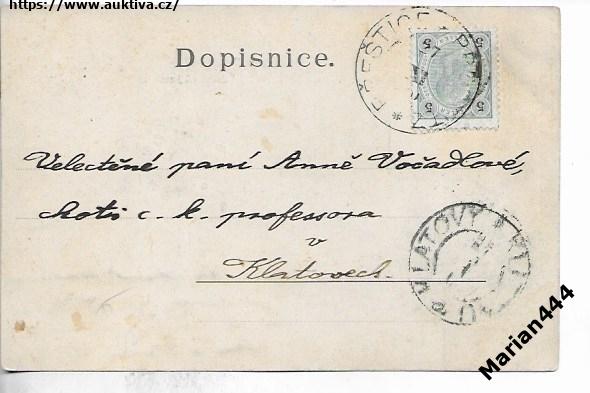 https://www.auktiva.cz/
Dopisnice.
5 5
5 5
Velectěné paní Anně Vočadlové,
choti c. k. professora
v
Klatovech.
KLATOVY
Marian444